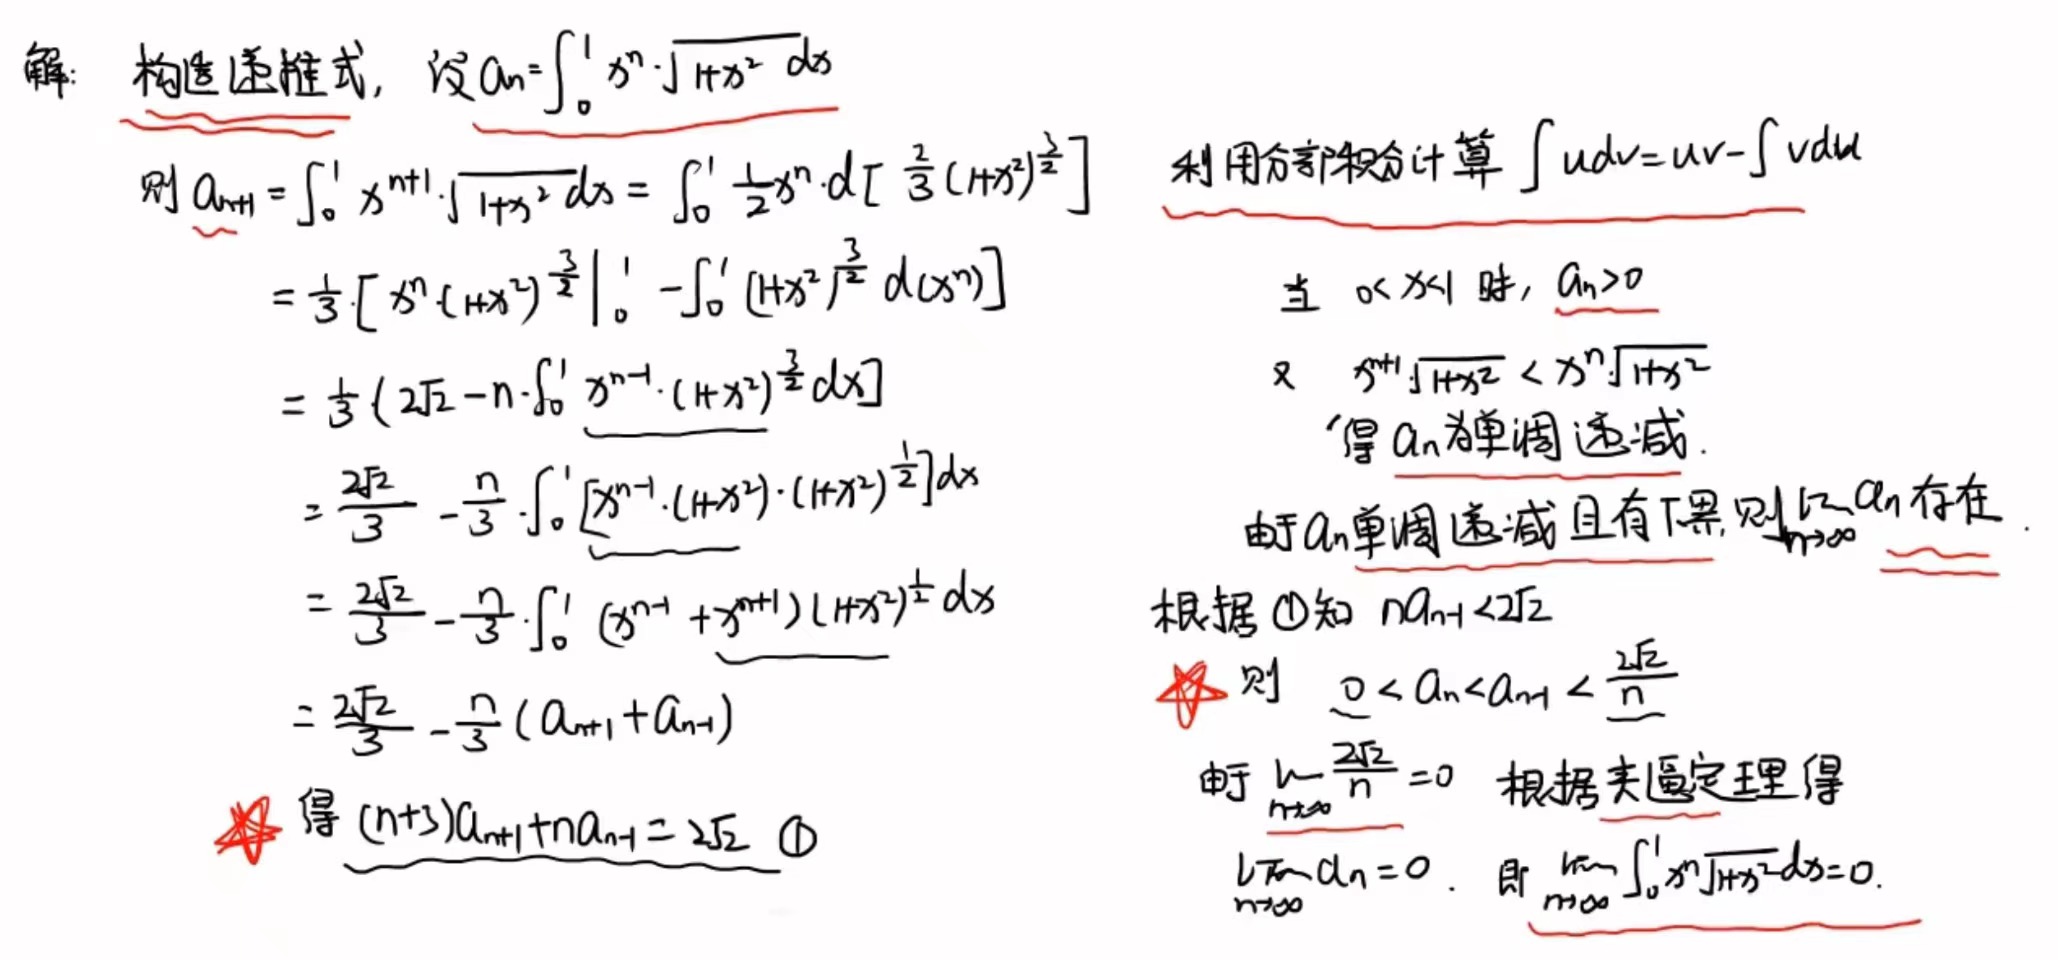 解: 构造递推式, 设 aₙ=∫₀¹ xⁿ·√(1+x²) dx
则 aₙ₊₁ = ∫₀¹ xⁿ⁺¹·√(1+x²) dx = ∫₀¹ 1/2 xⁿ·d[ 2/3 (1+x²)^(3/2) ]
= 1/3·[ xⁿ·(1+x²)^(3/2) |₀¹ - ∫₀¹ (1+x²)^(3/2) d(xⁿ) ]
= 1/3·( 2√2 - n·∫₀¹ xⁿ⁻¹·(1+x²)^(3/2) dx ]
= 2√2/3 - n/3·∫₀¹ [xⁿ⁻¹·(1+x²)·(1+x²)^(1/2)] dx
= 2√2/3 - n/3·∫₀¹ (xⁿ⁻¹ + xⁿ⁺¹)(1+x²)^(1/2) dx
= 2√2/3 - n/3 (aₙ₊₁ + aₙ₋₁)
得 (n+3)aₙ₊₁ + naₙ₋₁ = 2√2 ①
利用分部积分计算 ∫udv = uv - ∫vdu
当 0<x<1 时, aₙ>0
又 xⁿ⁺¹·√(1+x²) < xⁿ·√(1+x²)
得 aₙ为单调递减.
由于aₙ单调递减且有下界, 则 lim n→∞ aₙ 存在.
根据①知 naₙ₋₁<2√2
则 0 < aₙ < aₙ₋₁ < 2√2/n
由于 lim n→∞ 2√2/n = 0 根据夹逼定理得
lim n→∞ aₙ = 0. 即 lim n→∞ ∫₀¹ xⁿ√(1+x²) dx = 0.